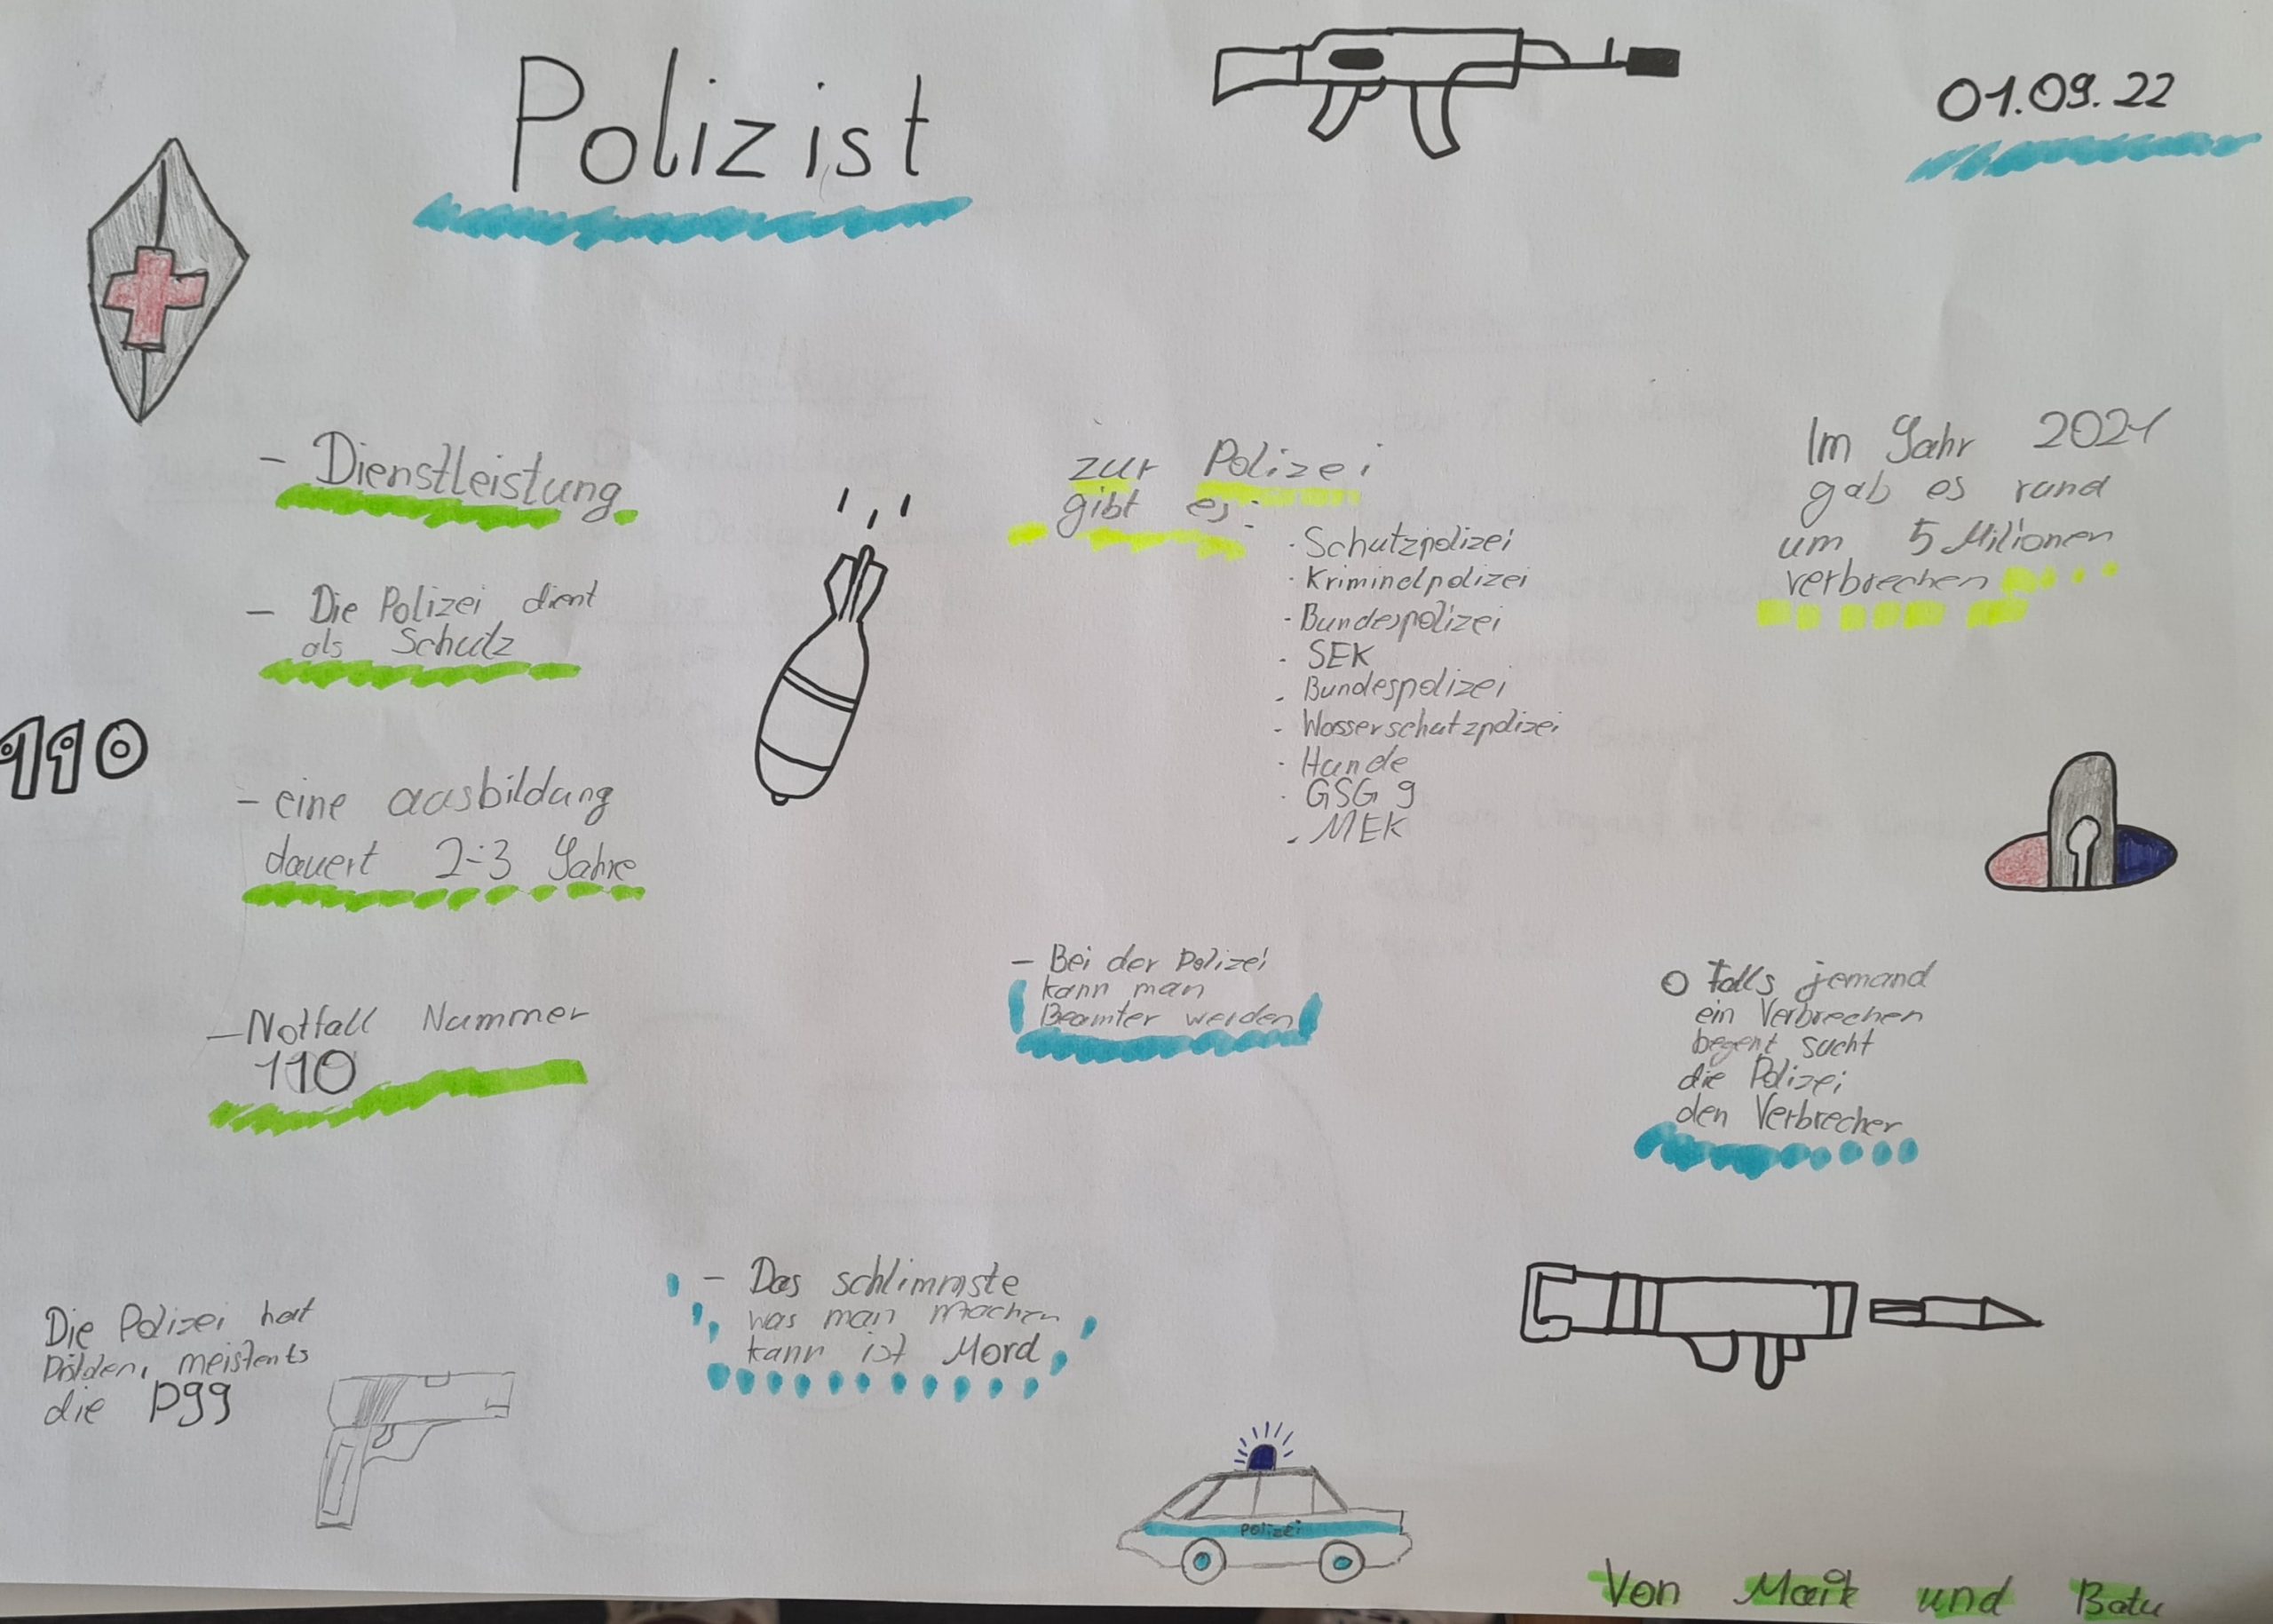 Polizist
01.09.22
- Dienstleistung
- Die Polizei dient
als Schutz
110
- eine ausbildung
dauert 2-3 Jahre
- Notfall Nummer
110
zur Polizei
gibt es:
· Schutzpolizei
· Kriminelpolizei
- Bundespolizei
- SEK
- Bundespolizei
- Wasserschutzpolizei
· Hunde
· GSG 9
- MEK
Im Jahr 2021
gab es rund
um 5 Milionen
verbrechen
- Bei der Polizei
kann man
Beamter werden
Falls jemand
ein Verbrechen
begent sucht
die Polizei
den Verbrecher
Die Polizei hat
meistents
die P99
- Das schlimmste
was man machen
kann ist Mord
Polizei
Von Maik und Batu